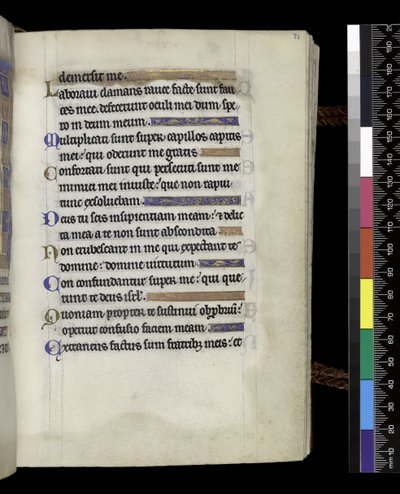 demersit me.
Laboraui clamans rauce facte sunt fau
ces mee: defecerunt oculi mei dum spe
ro in deum meum.
Multiplicati sunt super capillos capitis
mei: qui oderunt me gratis.
Confortati sunt qui persecuti sunt me
inimici mei iniuste: que non rapui
tunc exsoluebam.
Deus tu scis insipientiam meam: et delic
ta mea a te non sunt abscondita.
Non erubescant in me qui expectant te
domine: domine uirtutum.
Non confundantur super me: qui que
runt te deus isrl.
Quoniam propter te sustinui obprbriū:
operuit confusio faciem meam.
Extraneus factus sum fratribz meis: et